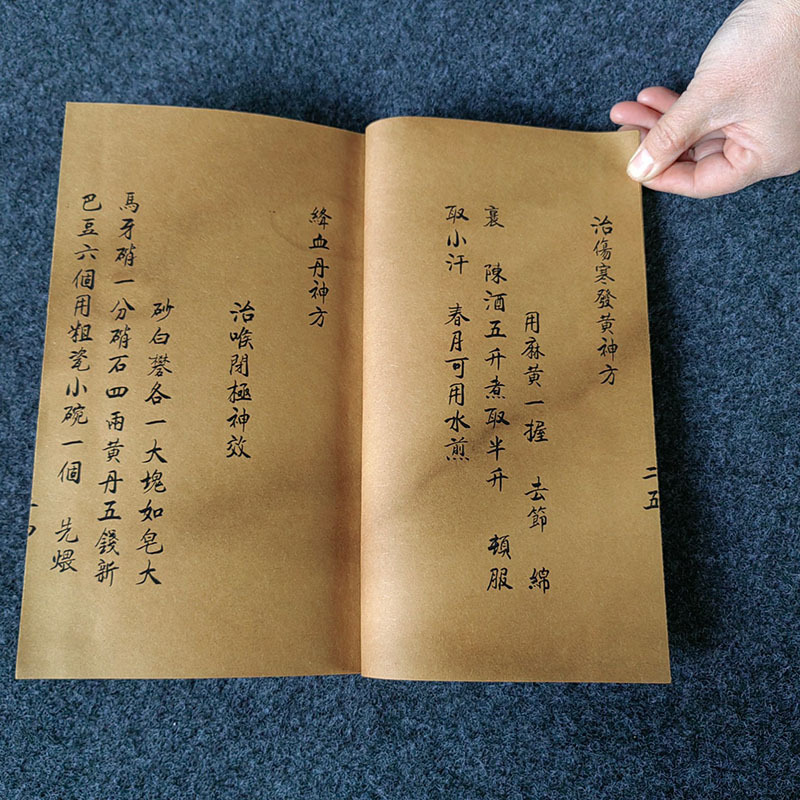 治傷寒發黃神方
用麻黃一握 去節 綿
裹 陳酒五升煮取半升 頓服
取小汗 春月可用水煎
二五
絳血丹神方
治喉閉極神效
砂白礬各一大塊如皂大
馬牙硝一分硝石四兩黃丹五錢新
巴豆六個用粗瓷小碗一個 先煨